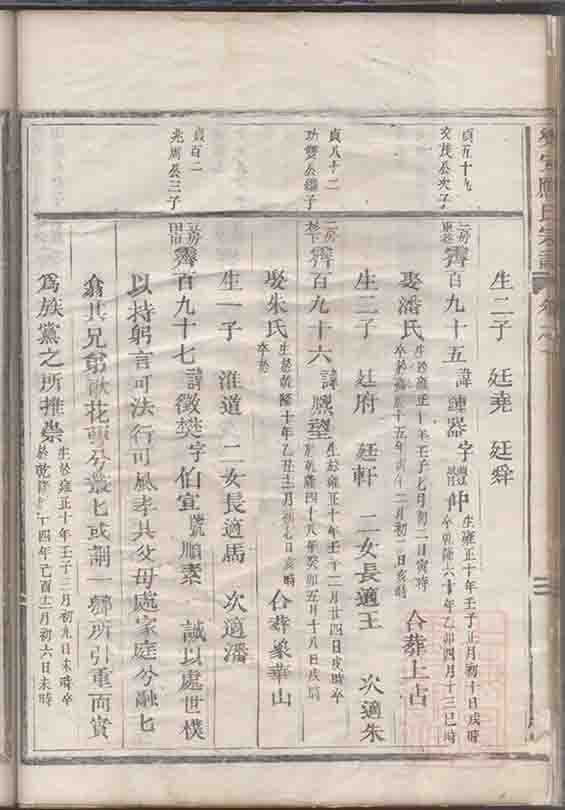 氏宗譜
生二子 廷堯 廷舜
貞五十九
交茂公次子
二房
霽百九十五 諱璉器 字體仲 生雍正十年壬子正月初十日戌時
卒乾隆六十年乙卯四月十三巳時
娶潘氏 生於雍正十年壬子七月初二日寅時 合葬上占
生二子 廷府 廷軒 二女長適王 次適朱
貞八十二
功雙公繼子
二房
霽百九十六 諱熈望 生於雍正十年壬子二月廿四日戌時卒
於乾隆四十八年癸卯五月十八日戌時
娶朱氏 生於乾隆十年乙丑十二月初七日亥時 合葬象華山
卒於
生一子 淮道 二女長適馬 次適潘
貞百二
兆周公三子
二房
霽百九十七 諱徵樊 字伯宜 號順素 誠以處世樸
以持躬言可法行可風孝其父母處家庭兮融七
翕其兄弟歌花萼兮叢七或制一鄉所引重而實
爲族黨之所推崇 生於雍正十年壬子三月初九日未時卒
於乾隆 十四年己酉十二月初六日未時